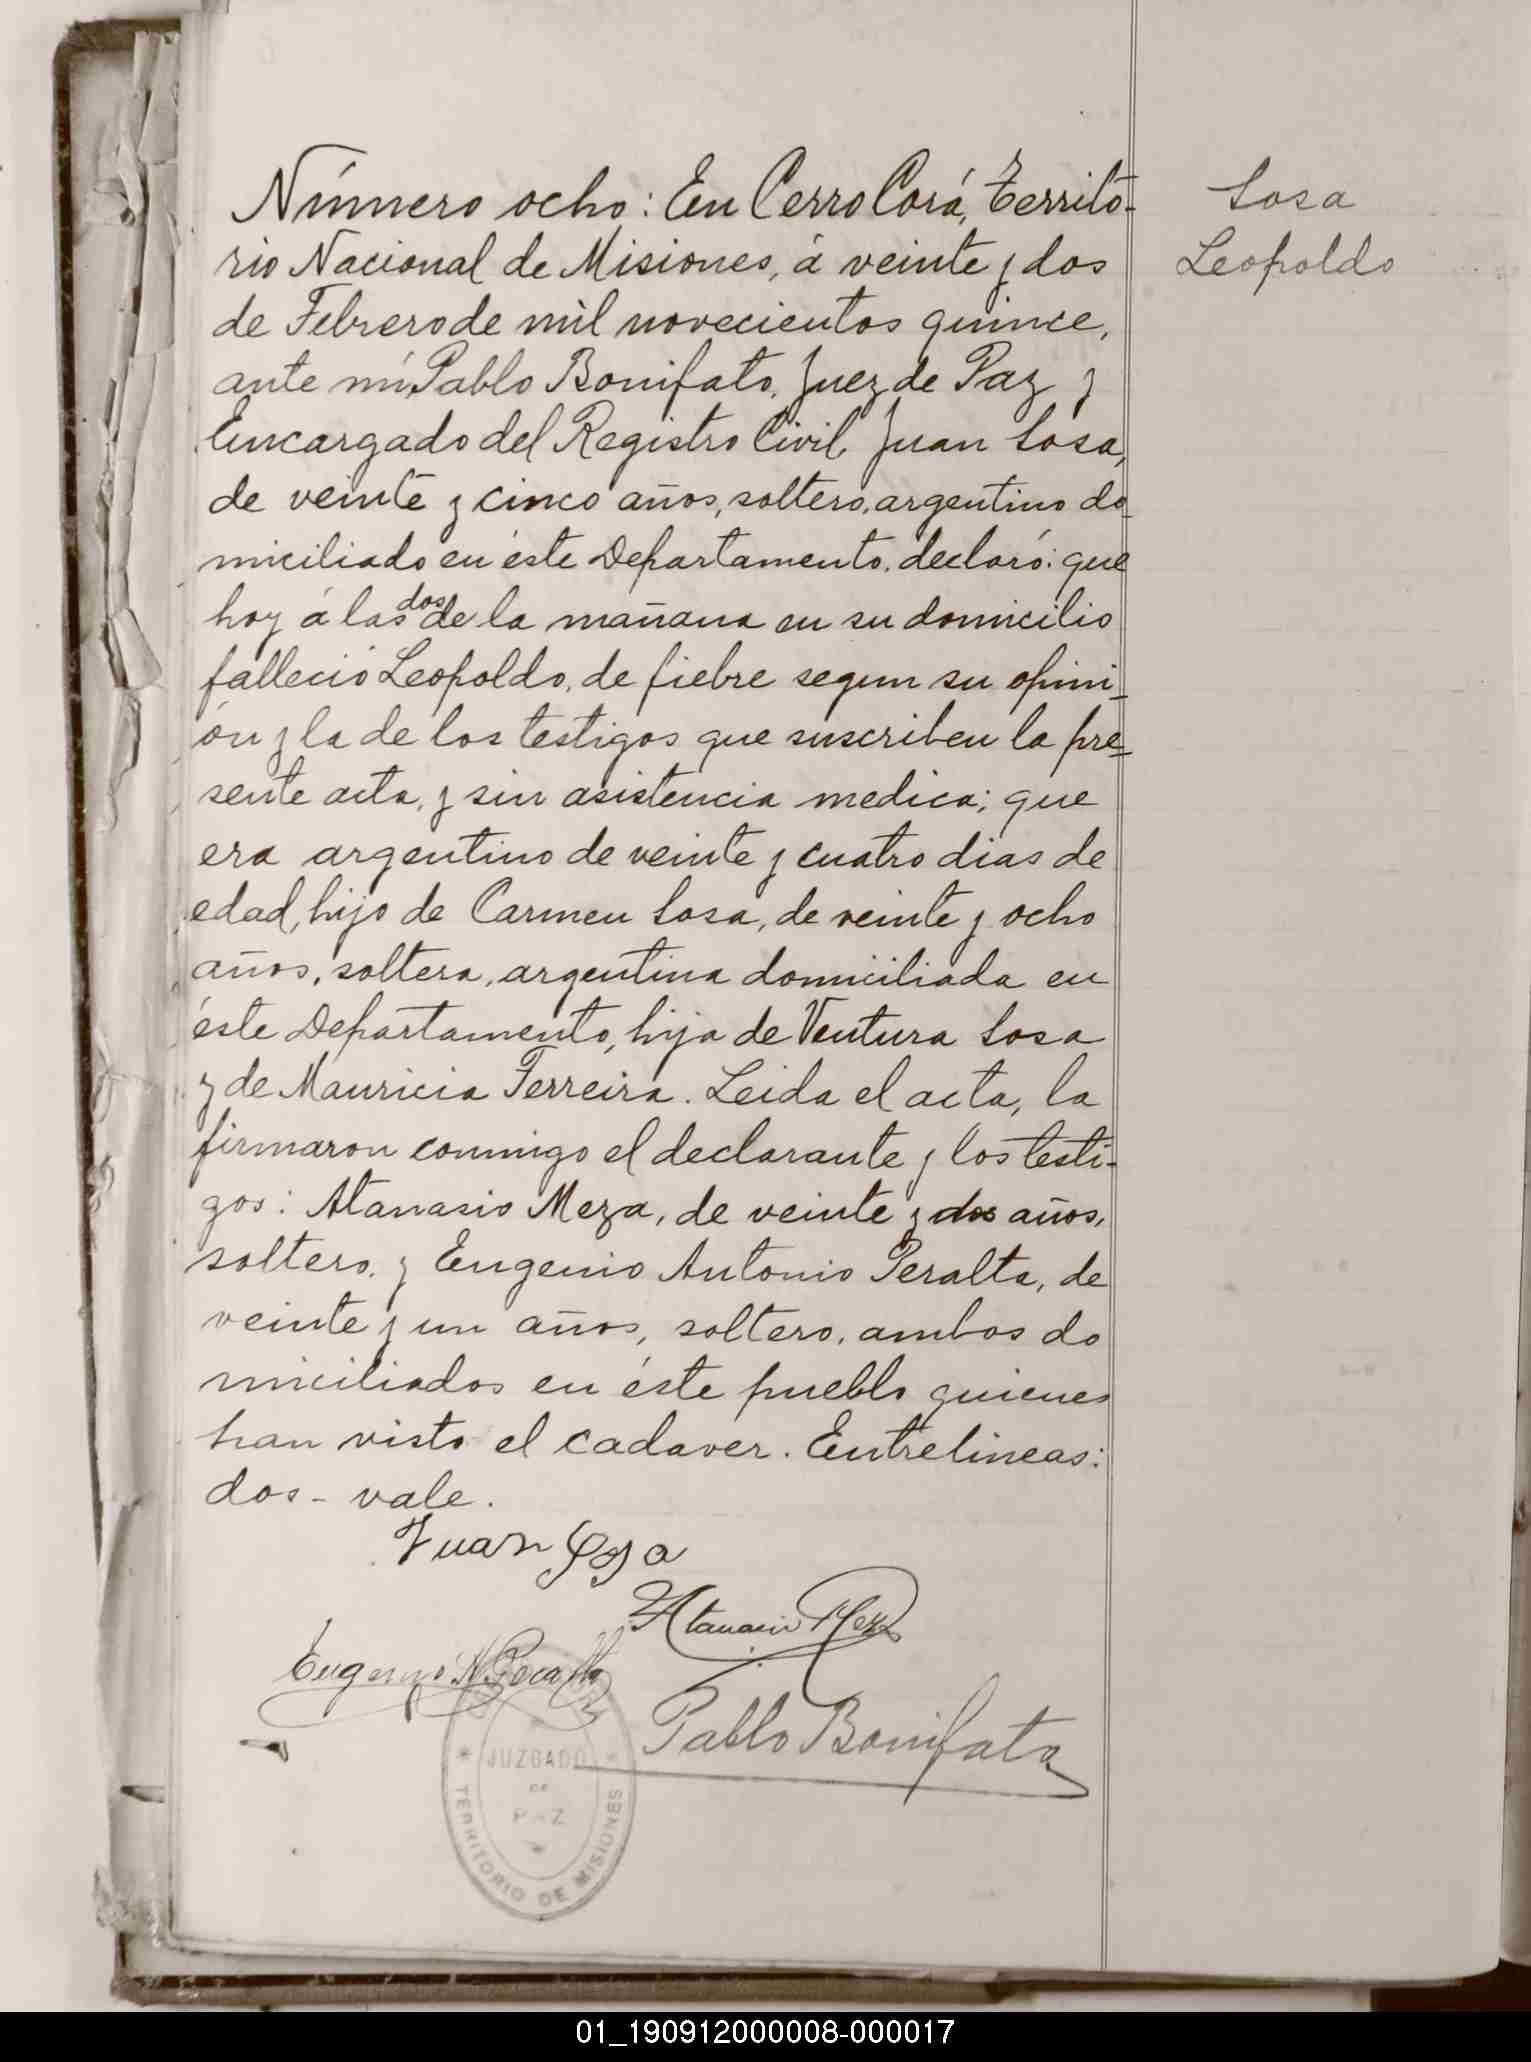 Número ocho: En Cerro Corá, Territo-
rio Nacional de Misiones, á veinte y dos
de Febrero de mil novecientos quince,
ante mí Pablo Bonifato, Juez de Paz y
Encargado del Registro Civil, Juan Sosa,
de veinte y cinco años, soltero, argentino do-
miciliado en éste Departamento, declaró: que
dos
hoy á las de la mañana en su domicilio
falleció Leopoldo, de fiebre segun su opini-
ón y la de los testigos que suscriben la pre-
sente acta, y sin asistencia medica; que
era argentino de veinte y cuatro dias de
edad, hijo de Carmen Sosa, de veinte y ocho
años, soltera, argentina domiciliada en
éste Departamento, hija de Ventura Sosa
y de Mauricia Ferreira. Leida el acta, la
firmaron conmigo el declarante y los testi-
gos: Atanasio Meza, de veinte y dos años,
soltero, y Eugenio Antonio Peralta, de
veinte y un años, soltero, ambos do
miciliados en éste pueblo quienes
han visto el cadaver. Entrelineas:
dos - vale.
Juan Sosa
Atanasio Meza
Eugenio A. Peralta
Pablo Bonifato
JUZGADO
DE
PAZ
TERRITORIO DE MISIONES
Sosa
Leopoldo
01_190912000008-000017